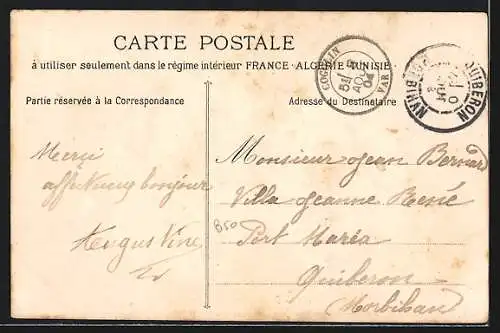 CARTE POSTALE
à utiliser seulement dans le régime intérieur FRANCE - ALGÉRIE - TUNISIE
COGOLIN
AOU
04
VAR
QUIBERON
MORBIHAN
Partie réservée à la Correspondance
Adresse du Destinataire
Merci
affectueux bonjour
Augustine
Monsieur Jean Bernard
Villa Jeanne René
Port Maria
Quiberon
Morbihan
B50